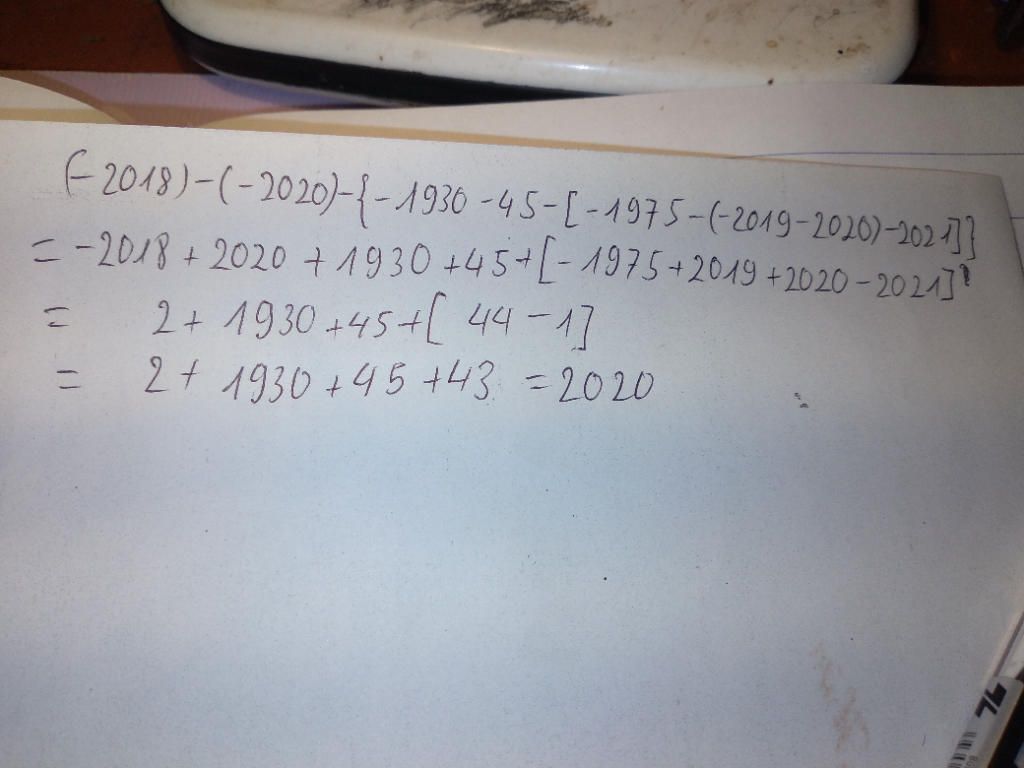 (-2018)-(-2020)-{-1930-45-[-1975-(-2019-2020)-2021]}
= -2018+2020+1930+45+[-1975+2019+2020-2021]
= 2+1930+45+[44-1]
= 2+1930+45+43 =2020
76